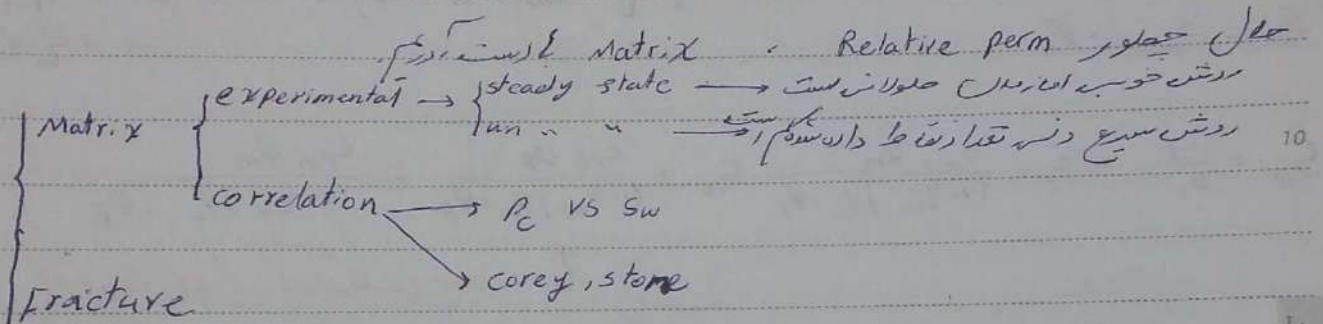 حال چطور Relative perm ، Matrix را بدست آوریم.
Matrix { experimental → { steady state → روش خوب اما زمان طولانی است
un " " → روش سریع ولی تعداد نقاط داده کم است
10
correlation → Pc vs Sw
→ corey, stone
Fracture